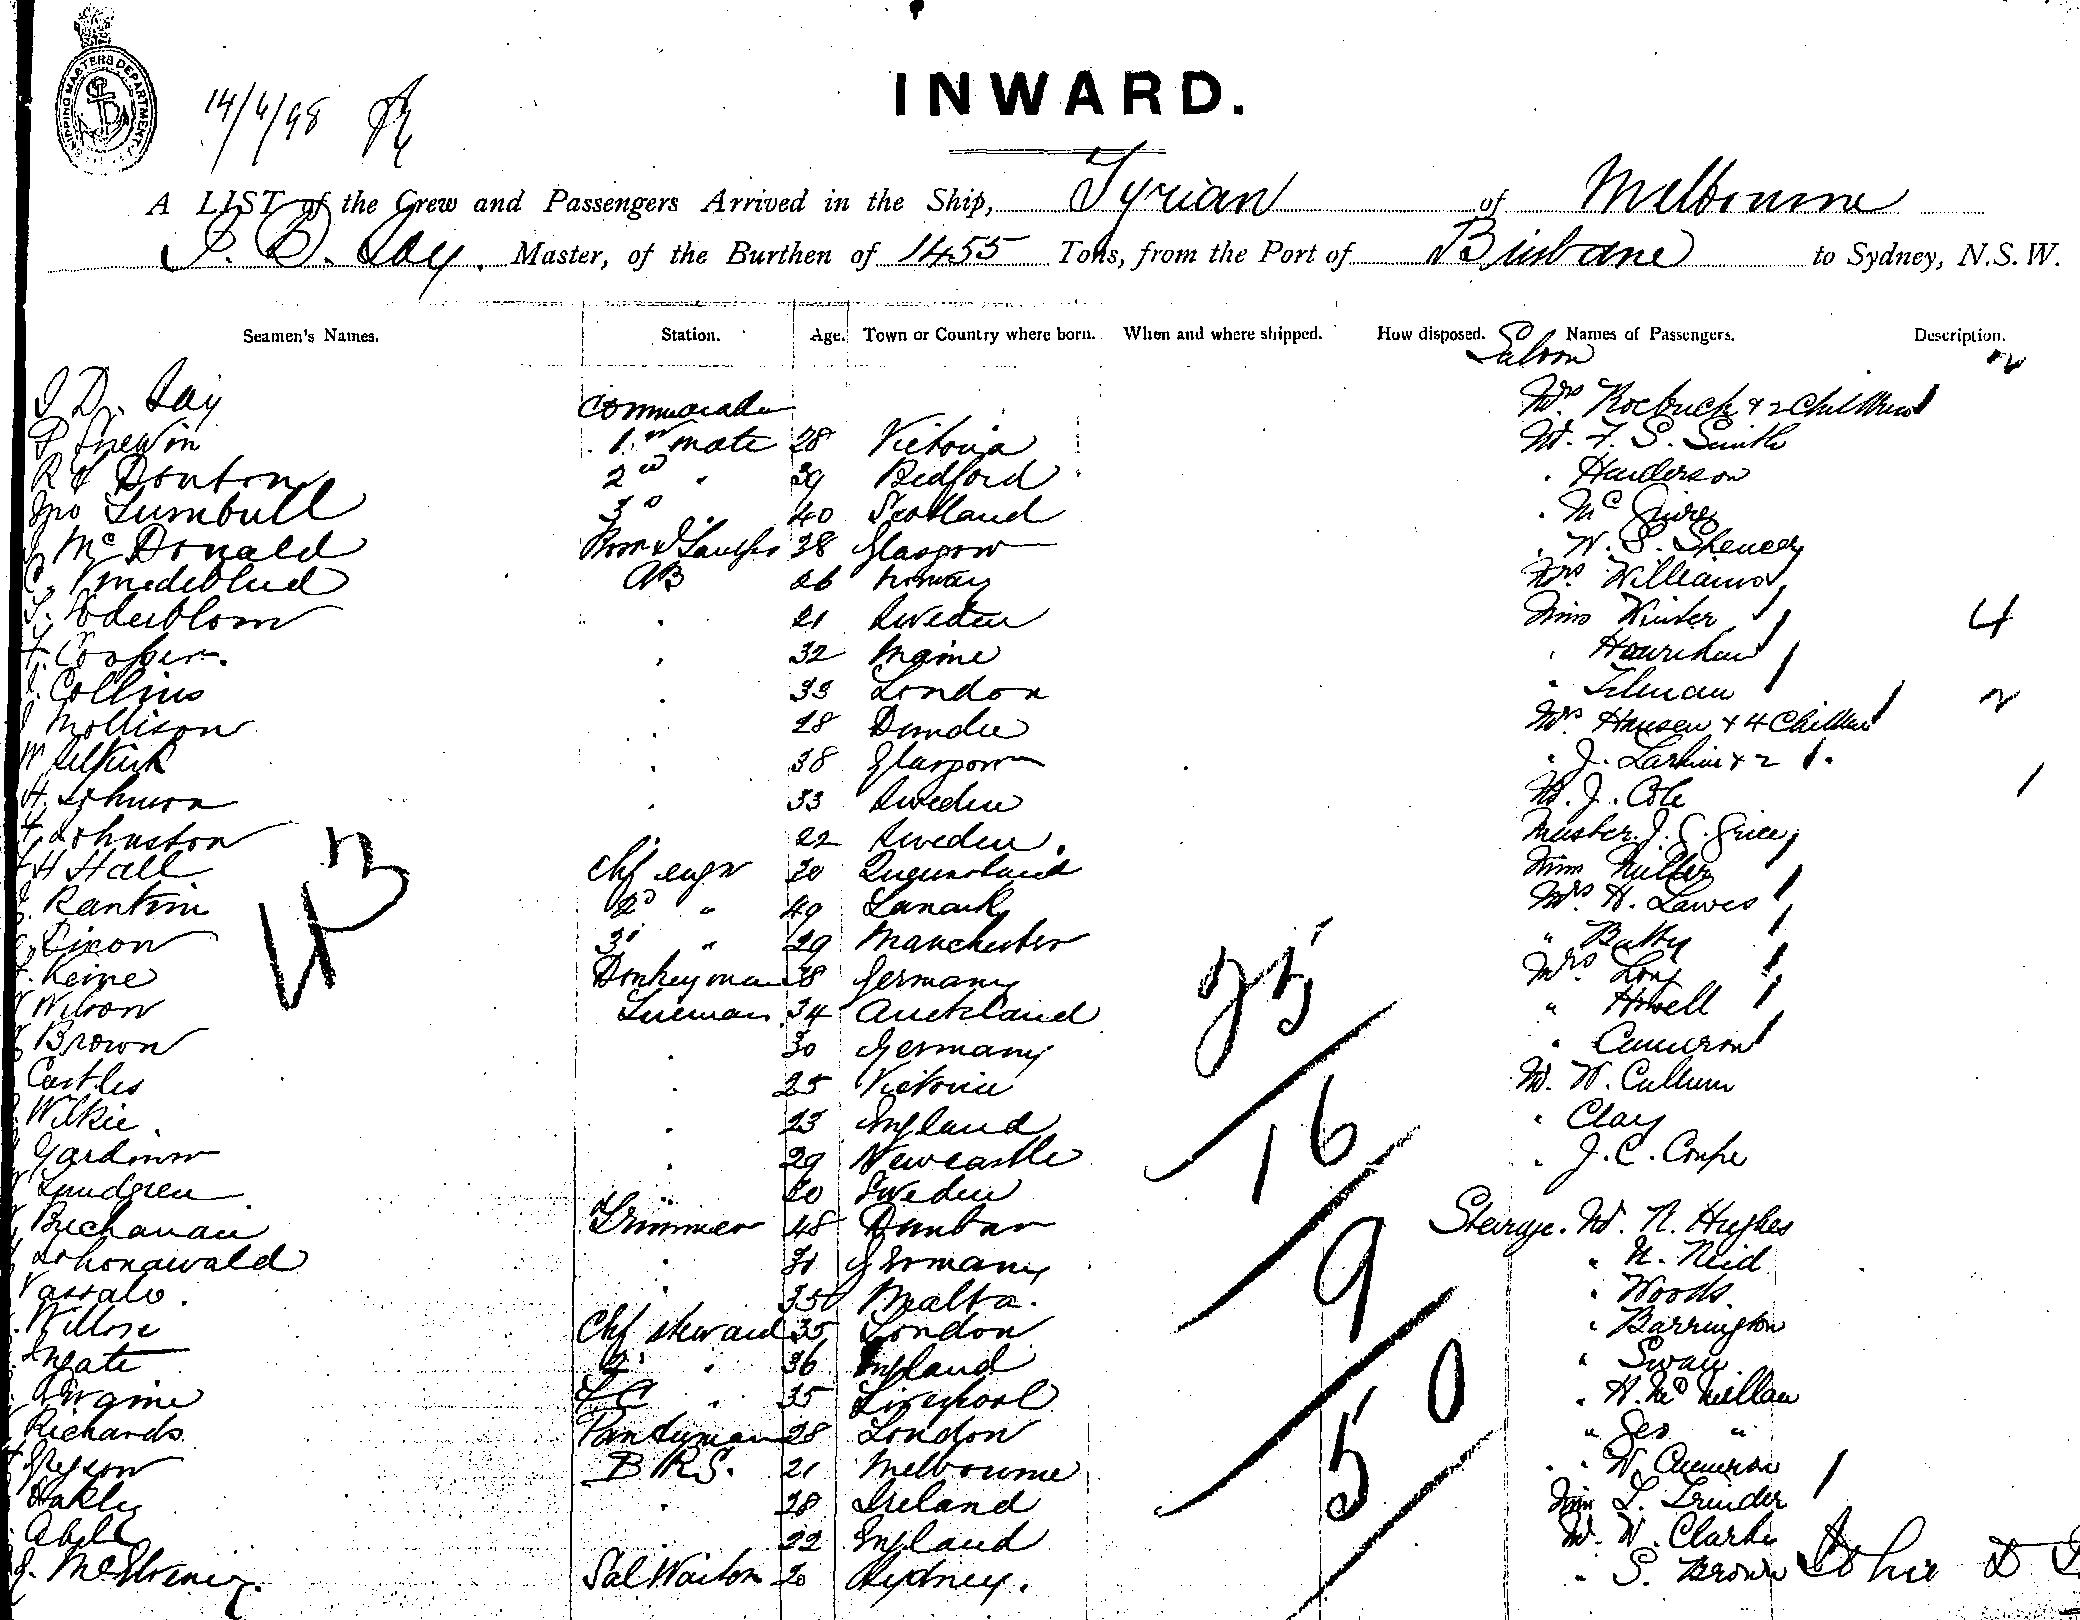 SHIPPING MASTERS DEPARTMENT
14/6/98
INWARD.
A LIST of the Crew and Passengers Arrived in the Ship, Tyrian of Melbourne
J. D. Lay. Master, of the Burthen of 1455 Tons, from the Port of Brisbane to Sydney, N.S.W.
Seamen's Names. Station. Age. Town or Country where born. When and where shipped. How disposed. Names of Passengers. Description.
Saloon 2
J D. Lay Commander Mrs Roebuck & 2 Children
1st mate 28 Victoria Mr. F. S. Smith
Donton 2nd " 39 Bedford " Henderson
Jno Turnbull 3d " 40 Scotland
J McDonald 38 Glasgow " W. S. Spencer
AB 26 Norway Mrs Williams
Soderblom " 21 Sweden Miss Winter 4
F. Cooper " 32 Maine " Hourihan
J. Collins " 33 London " Tilman
J Mollison " 28 Dundee Mrs Hansen & 4 Children 2
W Selkirk " 38 Glasgow " J. Larkin & 2
H. Johnson " 33 Sweden Mr. J. Cole 1
Johnston " 22 Sweden. Master J. G. Grice
H Hall Chf engr 30 Queensland Miss Miller
43
Rankin 2d " 49 Lanark Mrs H. Lawes
Dixon 3d " 29 Manchester " Batty
Heine Donkeyman 38 Germany Mrs Long
Wilson Fireman 34 Auckland " Howell
Brown " 30 Germany " Cameron
25
Castles " 25 Victoria Mr. W. Cullum
Wilkie " 23 England " Clay
16
Gardiner " 29 Newcastle " J. C. Coupe
Lundgren " 20 Sweden
Buchanan Trimmer 48 Dunbar Steerage. Mr. N. Hughes
Schonawald " 31 Germany " N. Reid
9
Vassalo " 35 Malta. " Woods
Chf steward 35 London " Barrington
Ingate 2d " 36 England " Swan
Airgine " 35 Liverpool " H. McMillan
50
Richards Pantryman 28 London " Geo "
B.R.S. 21 Melbourne " W. Cameron
Oakley " 28 Ireland Miss L. Trinder
Abell " 22 England Mr. W. Clarke
Sal Waiter 20 Sydney. " S. Brown John D